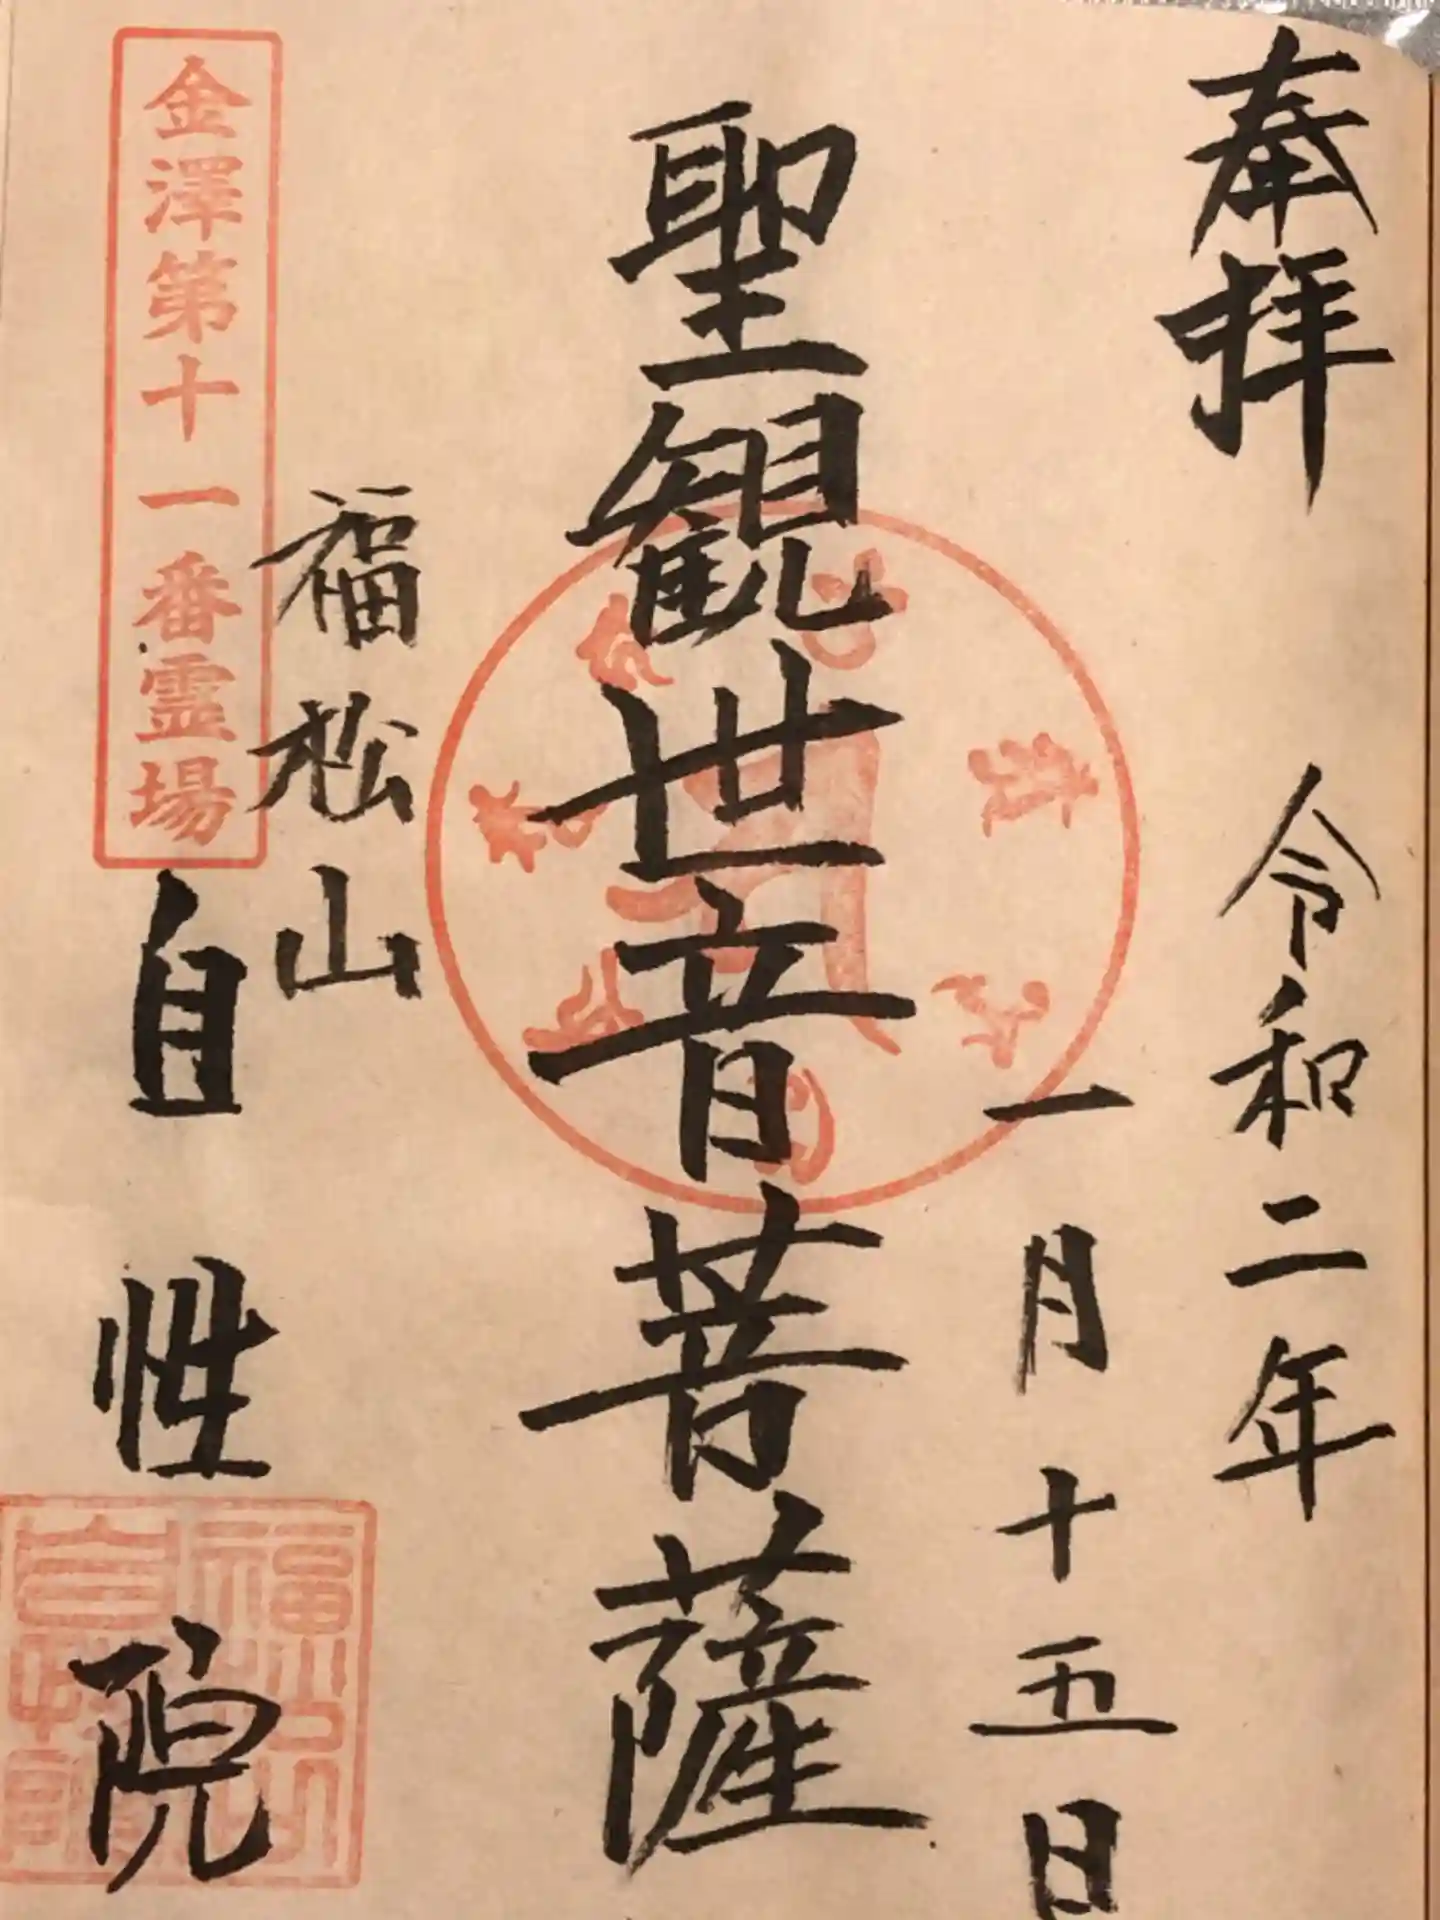 奉拝
令和二年
一月十五日
聖観世音菩薩
福松山
金澤第十一番霊場
自性院